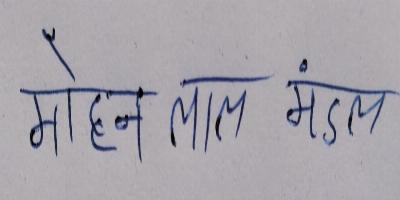 मोहन लाल मंडल